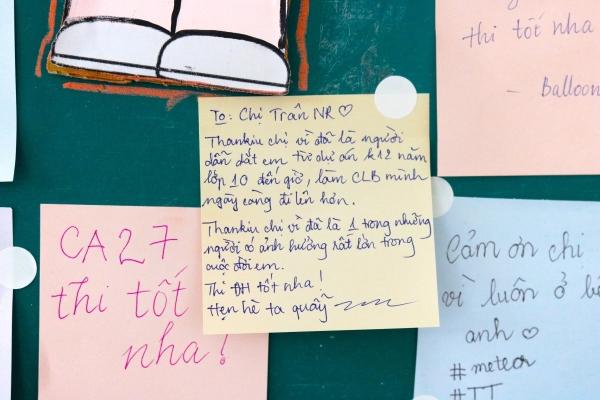 thi tốt nha
- Balloon
To: Chị Trân NR ♡
Thankiu chị vì đã là người
dẫn dắt em từ dự án k12 năm
lớp 10 đến giờ, làm CLB mình
ngày càng đi lên hơn.
Thankiu chị vì đã là 1 trong những
người có ảnh hưởng rất lớn trong
cuộc đời em.
Thi ĐH tốt nha!
Hẹn hè ta quẩy
CA27
thi tốt
nha!
Cảm ơn chị
vì luôn ở
anh ♡
#meteor
#TT